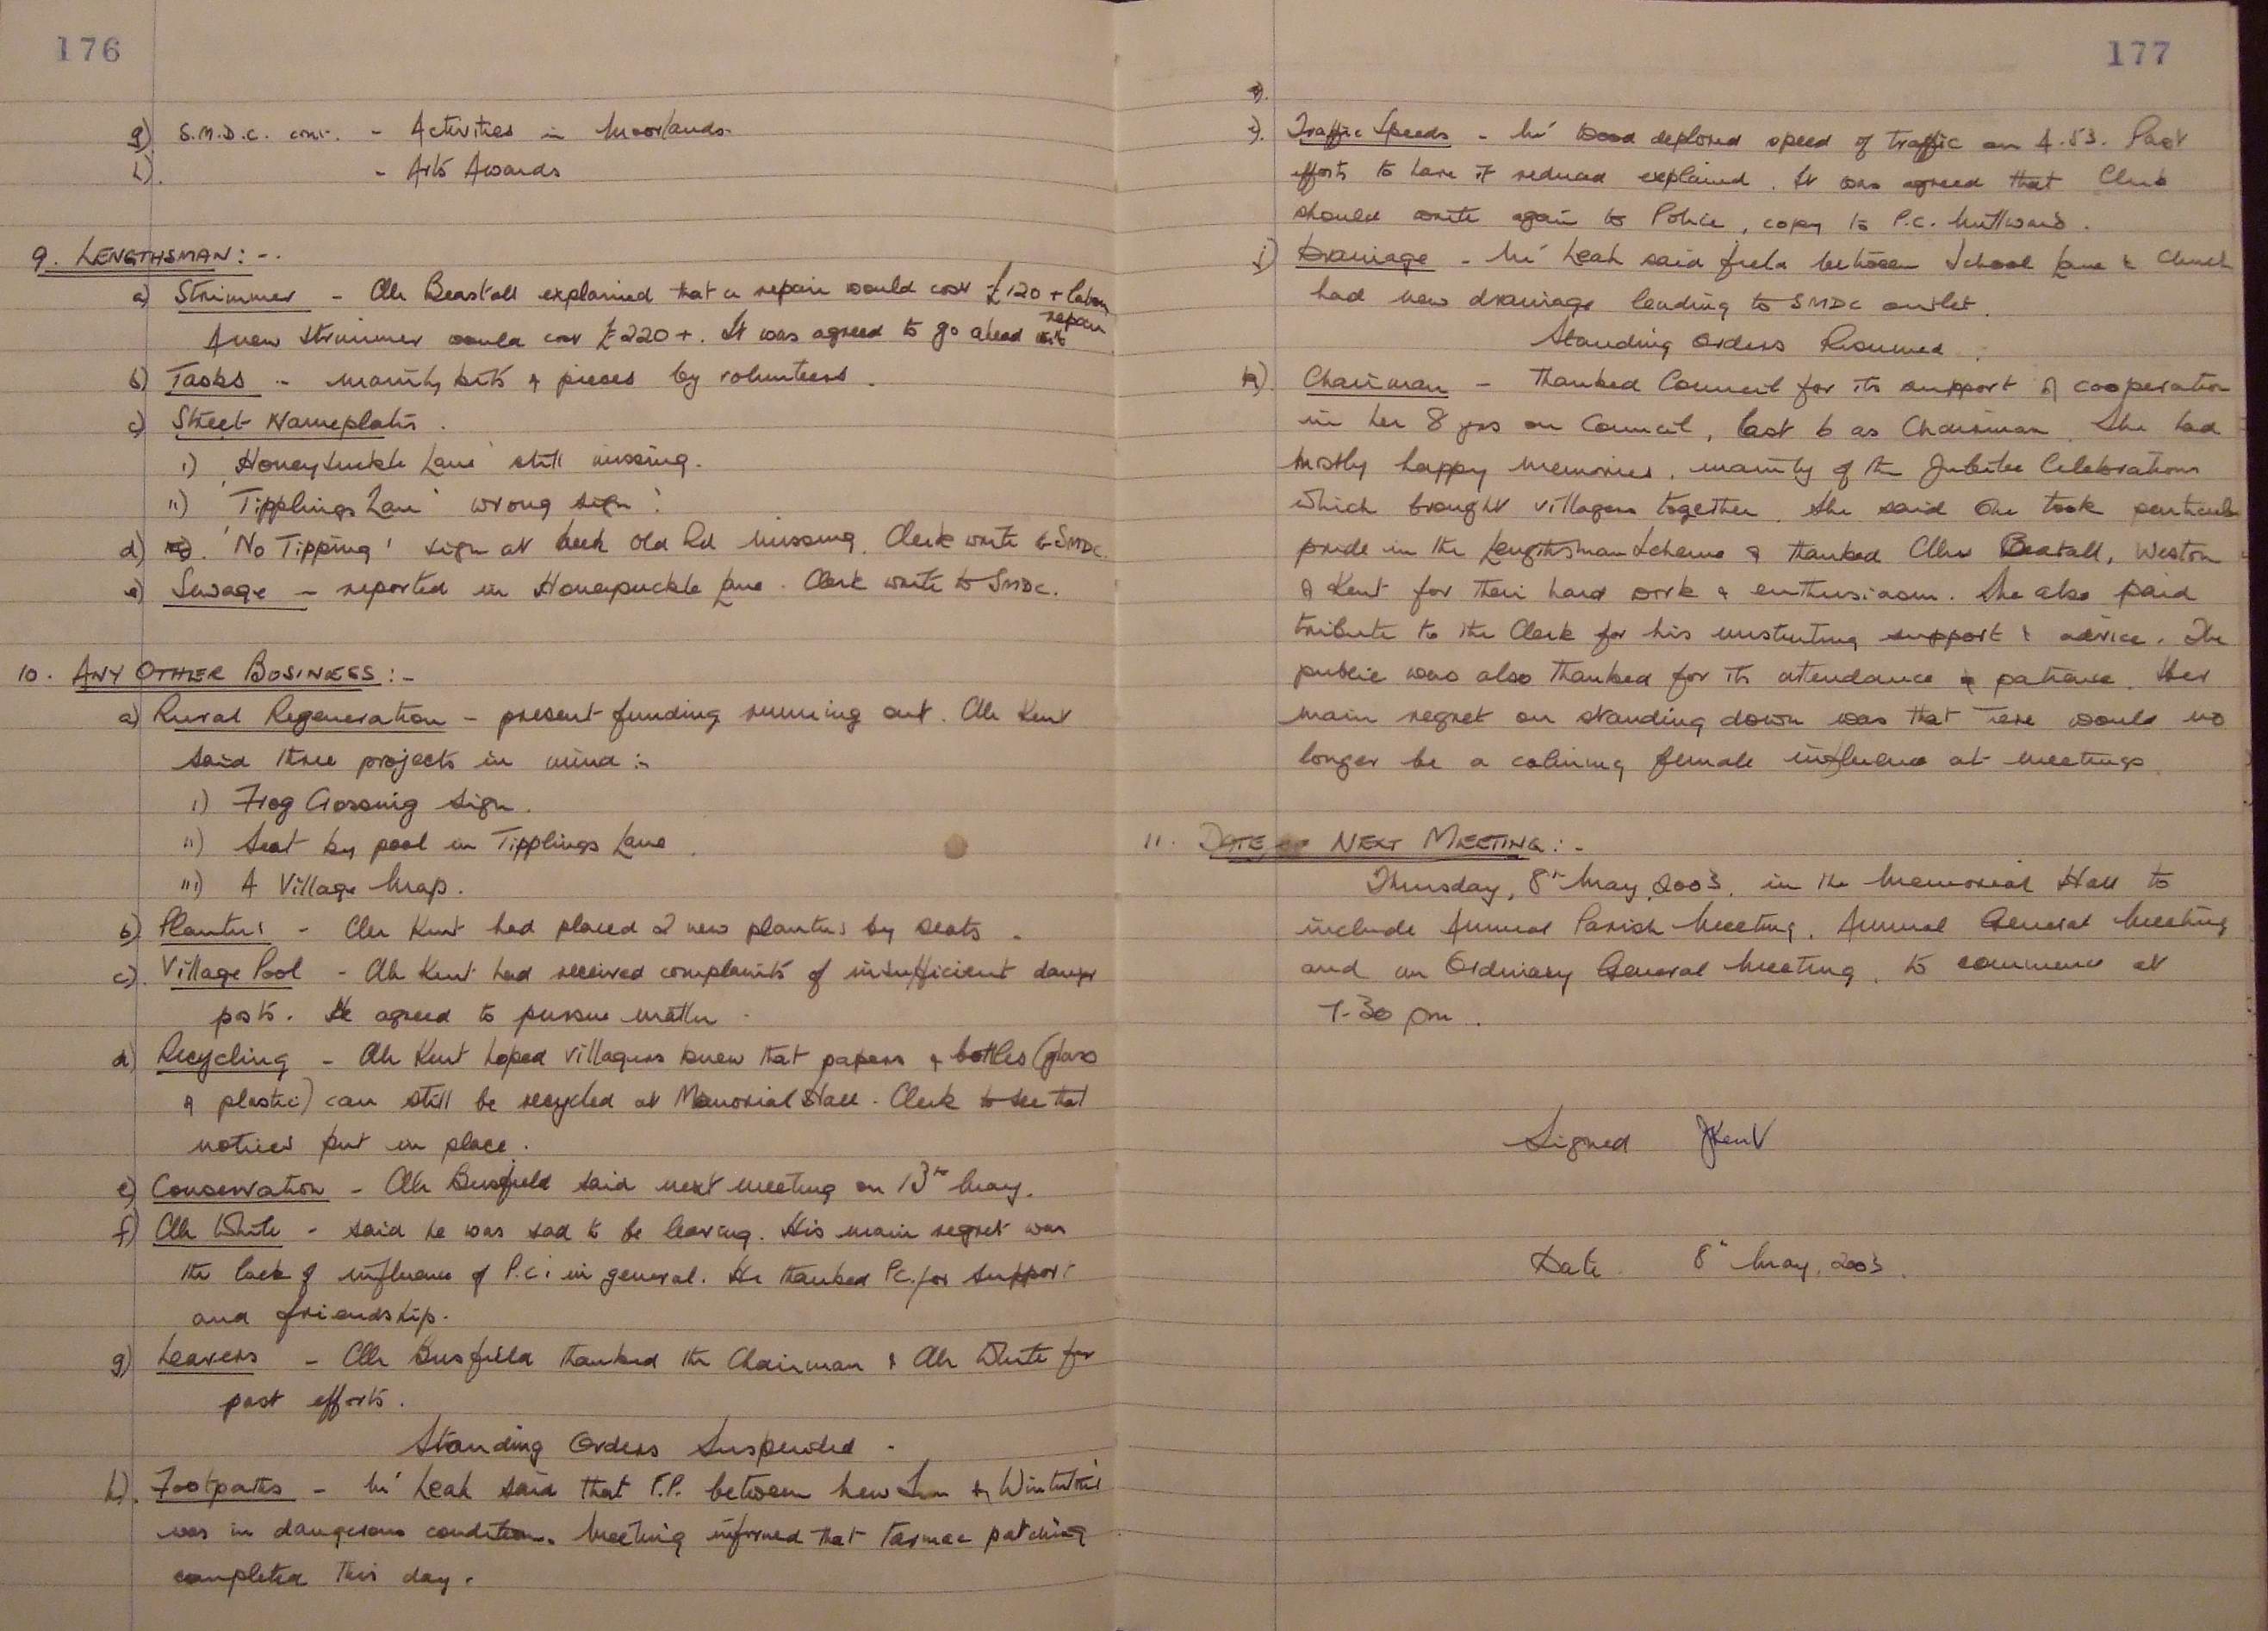 176
g) S.M.D.C. cont. - Activities in Moorlands.
h). - Arts Awards
9. LENGTHSMAN:-.
a) Strimmer - Cllr Beastall explained that a repair would cost £120 + labour
A new strimmer would cost £220+. It was agreed to go ahead with repair
b) Tasks - mainly bits & pieces by volunteers.
c) Street Nameplates.
i) 'Honeysuckle Lane' still missing.
ii) 'Tipplings Lane' wrong sign!
d) 'No Tipping' sign at Leek Old Rd missing. Clerk write to SMDC.
e) Sewage - reported in Honeysuckle Lane. Clerk write to SMDC.
10. ANY OTHER BUSINESS:-
a) Rural Regeneration - present funding running out. Cllr Kent
said three projects in mind:-
i) Frog Crossing sign.
ii) Seat by pool in Tipplings Lane.
iii) A Village Map.
b) Planters - Cllr Kent had placed 2 new planters by seats.
c). Village Pool - Cllr Kent had received complaints of insufficient danger
posts. He agreed to pursue matter.
d) Recycling - Cllr Kent hoped villagers knew that papers & bottles (glass
& plastic) can still be recycled at Memorial Hall. Clerk to see that
notices put in place.
e) Conservation - Cllr Busfield said next meeting on 13th May.
f) Cllr White - said he was sad to be leaving. His main regret was
the lack of influence of P.C.s in general. He thanked P.C. for support
and friendship.
g) Leavers - Cllr Busfield thanked the Chairman & Cllr White for
past efforts.
Standing Orders Suspended.
h). Footpaths - Mr Leah said that F.P. between New Inn &
was in dangerous condition. Meeting informed that tarmac patching
completed this day.
177
i). Traffic Speeds - Mr Wood deplored speed of traffic on A.53. Past
efforts to have it reduced explained. It was agreed that Clerk
should write again to Police, copy to P.C. Millward.
j) Drainage - Mr Leah said field between School Lane & Church
had new drainage leading to SMDC outlet.
Standing Orders Resumed.
k). Chairman - Thanked Council for its support & cooperation
in her 8 yrs on Council, last 6 as Chairman. She had
mostly happy memories, mainly of the Jubilee Celebrations
which brought villagers together. She said she took particular
pride in the Lengthsman Scheme & thanked Cllrs Beastall, Weston
& Kent for their hard work & enthusiasm. She also paid
tribute to the Clerk for his unstinting support & advice. The
public was also thanked for its attendance & patience. Her
main regret on standing down was that there would no
longer be a calming female influence at meetings.
11. DATE OF NEXT MEETING:-
Thursday, 8th May, 2003, in the Memorial Hall to
include Annual Parish Meeting, Annual General Meeting
and an Ordinary General Meeting, to commence at
7-30 pm.
Signed JKent
Date 8th May, 2003.